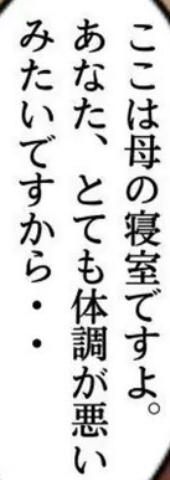 ここは母の寝室ですよ。
あなた、とても体調が悪い
みたいですから・・